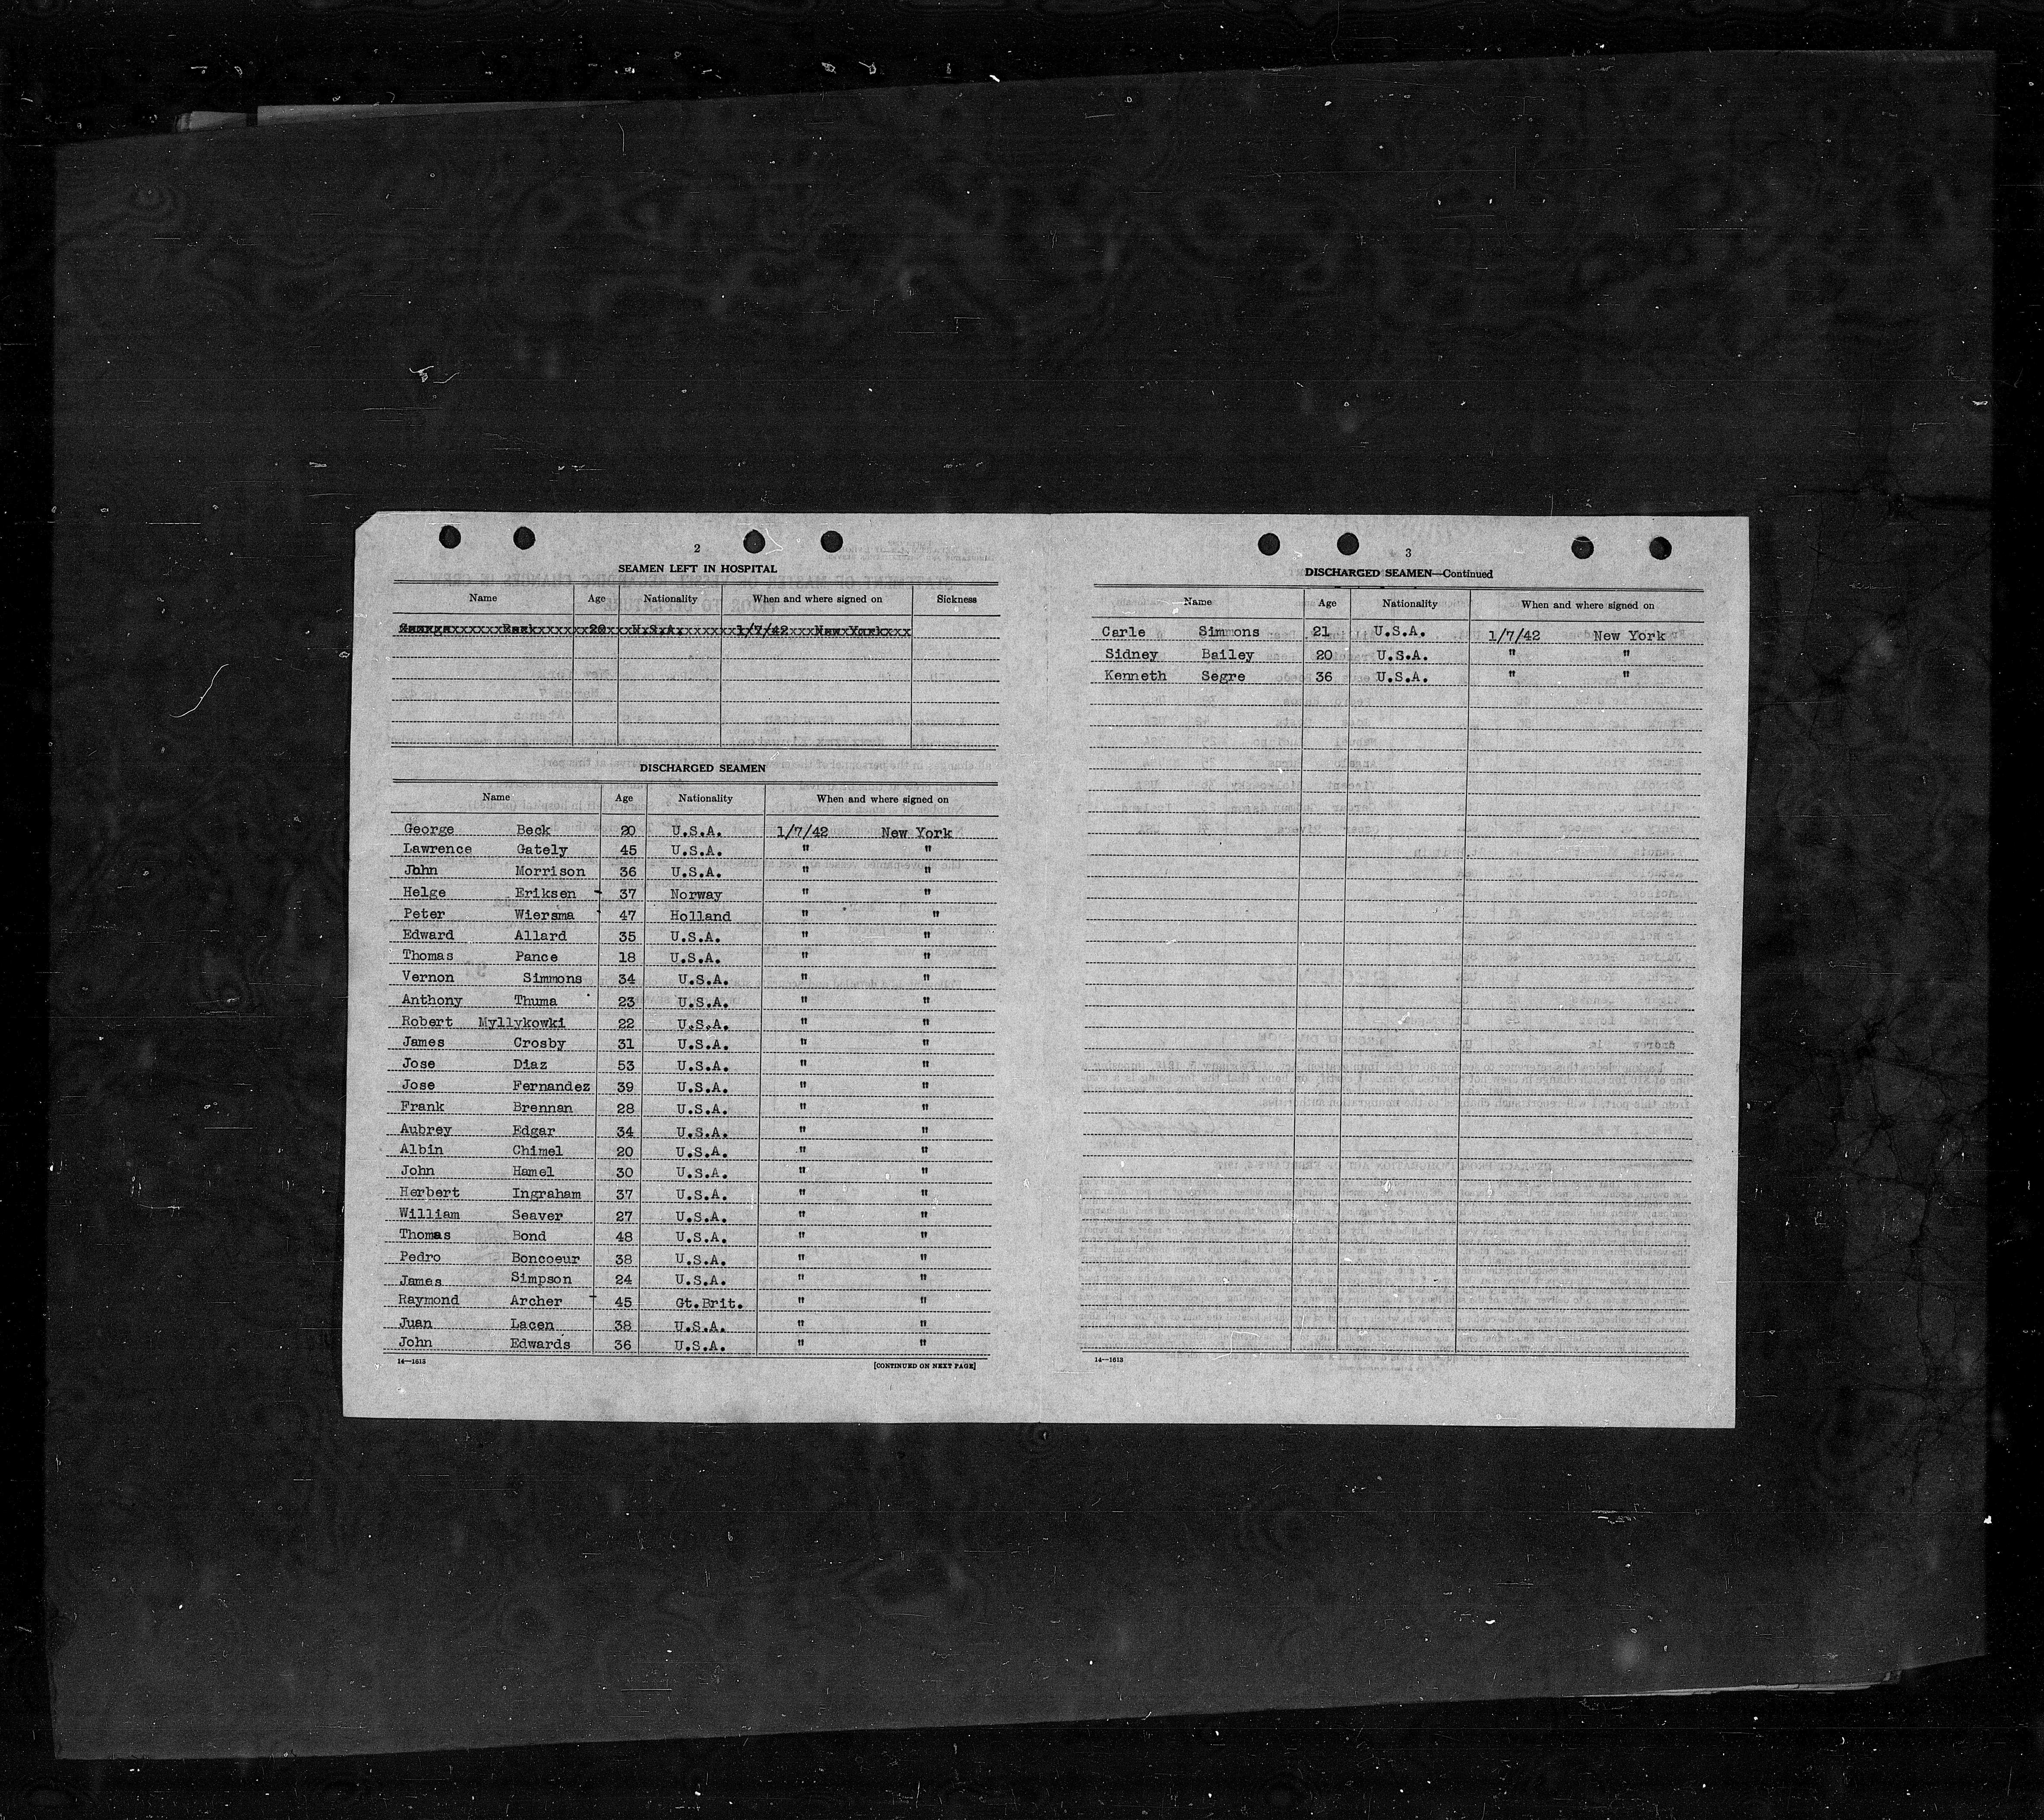 2
SEAMEN LEFT IN HOSPITAL
Name Age Nationality When and where signed on Sickness
George Beck 20 U.S.A. 1/7/42 New York
DISCHARGED SEAMEN
Name Age Nationality When and where signed on
George Beck 20 U.S.A. 1/7/42 New York
Lawrence Gately 45 U.S.A. " "
John Morrison 36 U.S.A. " "
Helge Eriksen 37 Norway " "
Peter Wiersma 47 Holland " "
Edward Allard 35 U.S.A. " "
Thomas Pance 18 U.S.A. " "
Vernon Simmons 34 U.S.A. " "
Anthony Thuma 23 U.S.A. " "
Robert Myllykowki 22 U.S.A. " "
James Crosby 31 U.S.A. " "
Jose Diaz 53 U.S.A. " "
Jose Fernandez 39 U.S.A. " "
Frank Brennan 28 U.S.A. " "
Aubrey Edgar 34 U.S.A. " "
Albin Chimel 20 U.S.A. " "
John Hamel 30 U.S.A. " "
Herbert Ingraham 37 U.S.A. " "
William Seaver 27 U.S.A. " "
Thomas Bond 48 U.S.A. " "
Pedro Boncoeur 38 U.S.A. " "
James Simpson 24 U.S.A. " "
Raymond Archer 45 Gt.Brit. " "
Juan Lacen 38 U.S.A. " "
John Edwards 36 U.S.A. " "
14—1613 [CONTINUED ON NEXT PAGE]
3
DISCHARGED SEAMEN—Continued
Name Age Nationality When and where signed on
Carle Simmons 21 U.S.A. 1/7/42 New York
Sidney Bailey 20 U.S.A. " "
Kenneth Segre 36 U.S.A. " "
14—1613